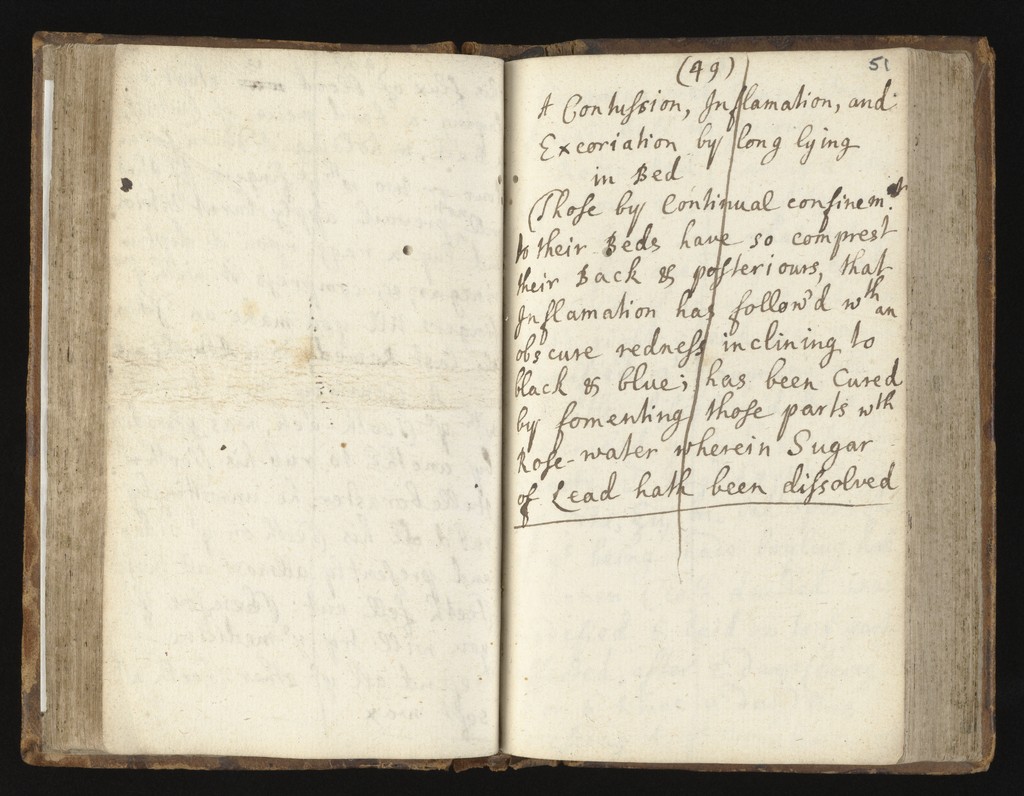 (49)
51
A Contussion, Inflamation, and
Excoriation by long lying
in Bed
(Those by Continual confinem.t
to their Beds have so comprest
their Back & posteriours, that
Inflamation has follow'd wth an
obscure redness inclining to
black & blue; has been Cured
by fomenting those parts wth
Rose-water wherein Sugar
of Lead hath been dissolved